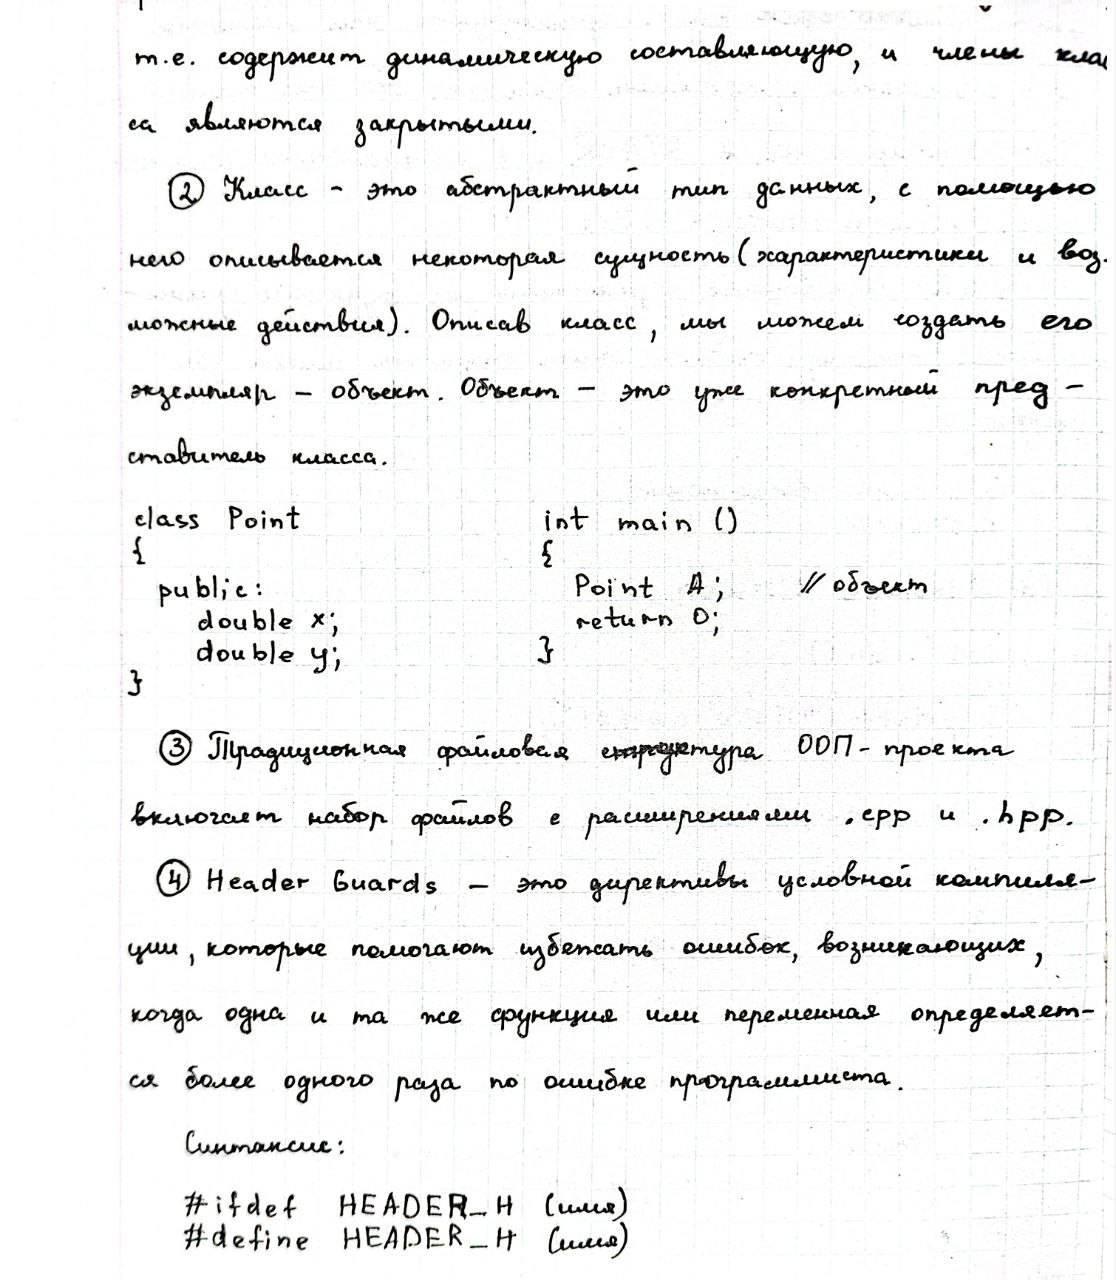 т.е. содержит динамическую составляющую, и члены клас
са являются закрытыми.
② Класс - это абстрактный тип данных, с помощью
него описывается некоторая сущность (характеристики и воз-
можные действия). Описав класс, мы можем создать его
экземпляр - объект. Объект - это уже конкретный пред -
ставитель класса.
class Point
{
public:
double x;
double y;
}
int main ()
{
Point A; // объект
return 0;
}
③ Традиционная файловая структура ООП - проекта
включает набор файлов с расширениями .cpp и .hpp.
④ Header Guards - это директивы условной компиля-
ции, которые помогают избежать ошибок, возникающих,
когда одна и та же функция или переменная определяет-
ся более одного раза по ошибке программиста.
Синтаксис:
#ifdef HEADER_H (имя)
#define HEADER_H (имя)